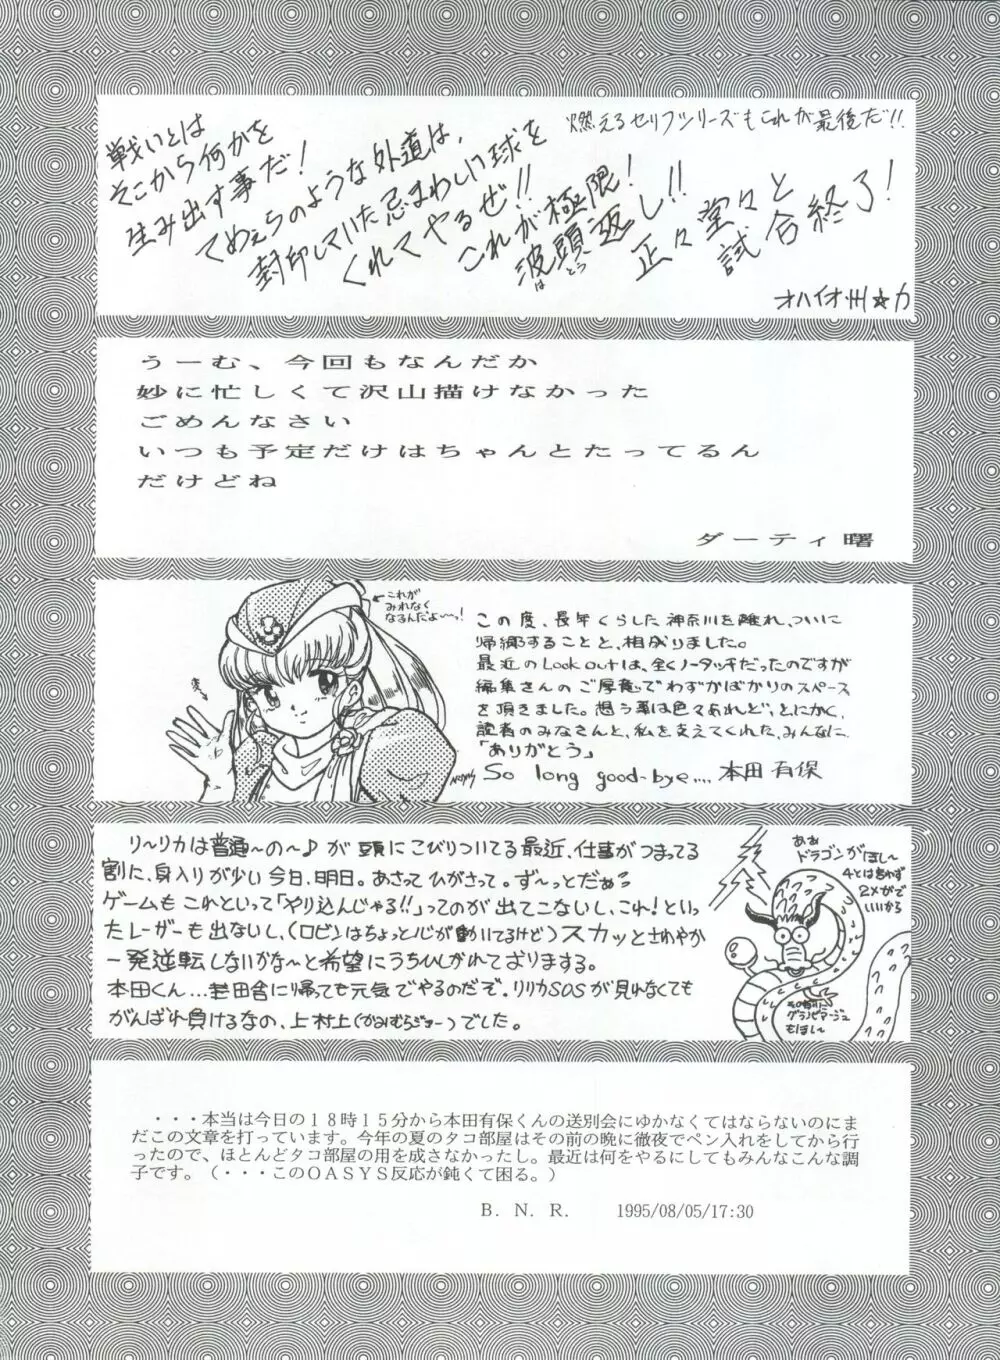 燃えるセリフシリーズもこれが最後だ!!
戦いとは
そこから何かを
生み出す事だ!
てめぇらのような外道は、
封印していた忌まわしい球を
くれてやるぜ!!
これが極限!
波頭返し!!
はとう
正々堂々と
試合終了!
オハイオ州☆力
うーむ、今回もなんだか
妙に忙しくて沢山描けなかった
ごめんなさい
いつも予定だけはちゃんとたってるん
だけどね
ダーティ曙
これが
みれなく
なるんだよ〜〜!
この度、長年くらした神奈川を離れ、ついに
帰郷することと、相成りました。
最近のLook outは、全くノータッチだったのですが
編集さんのご厚意でわずかばかりのスペース
を頂きました。想う事は色々あれど、とにかく、
読者のみなさんと、私を支えてくれた、みんなに
「ありがとう」
So long good-bye.... 本田有保
リ〜リカは普通〜の〜♪が頭にこびりついてる最近、仕事がつまってる
割に、身入りが少い今日、明日。あさってひがさって。ず〜っとだぁ
ゲームもこれといって「やり込んじゃる!!」ってのが出てこないし、これ!といっ
たレーザーも出ないし、(ロビンはちょっと心が動いてるけど)スカッとさわやか
一発逆転しないかな〜と希望にうちひしがれておりまする。
本田くん...田舎に帰っても元気でやるのだぞ。リリカSOSが見れなくても
がんばれ負けるなの、上村上(かみむらジョー)でした。
あぁ
ドラゴンがほし〜
4とは言わず
2メガで
いいから
グランビアージュ
もほし〜
・・・本当は今日の18時15分から本田有保くんの送別会にゆかなくてはならないのにま
だこの文章を打っています。今年の夏のタコ部屋はその前の晩に徹夜でペン入れをしてから行
ったので、ほとんどタコ部屋の用を成さなかったし。最近は何をやるにしてもみんなこんな調
子です。(・・・このOASYS反応が鈍くて困る。)
B. N. R. 1995/08/05/17:30